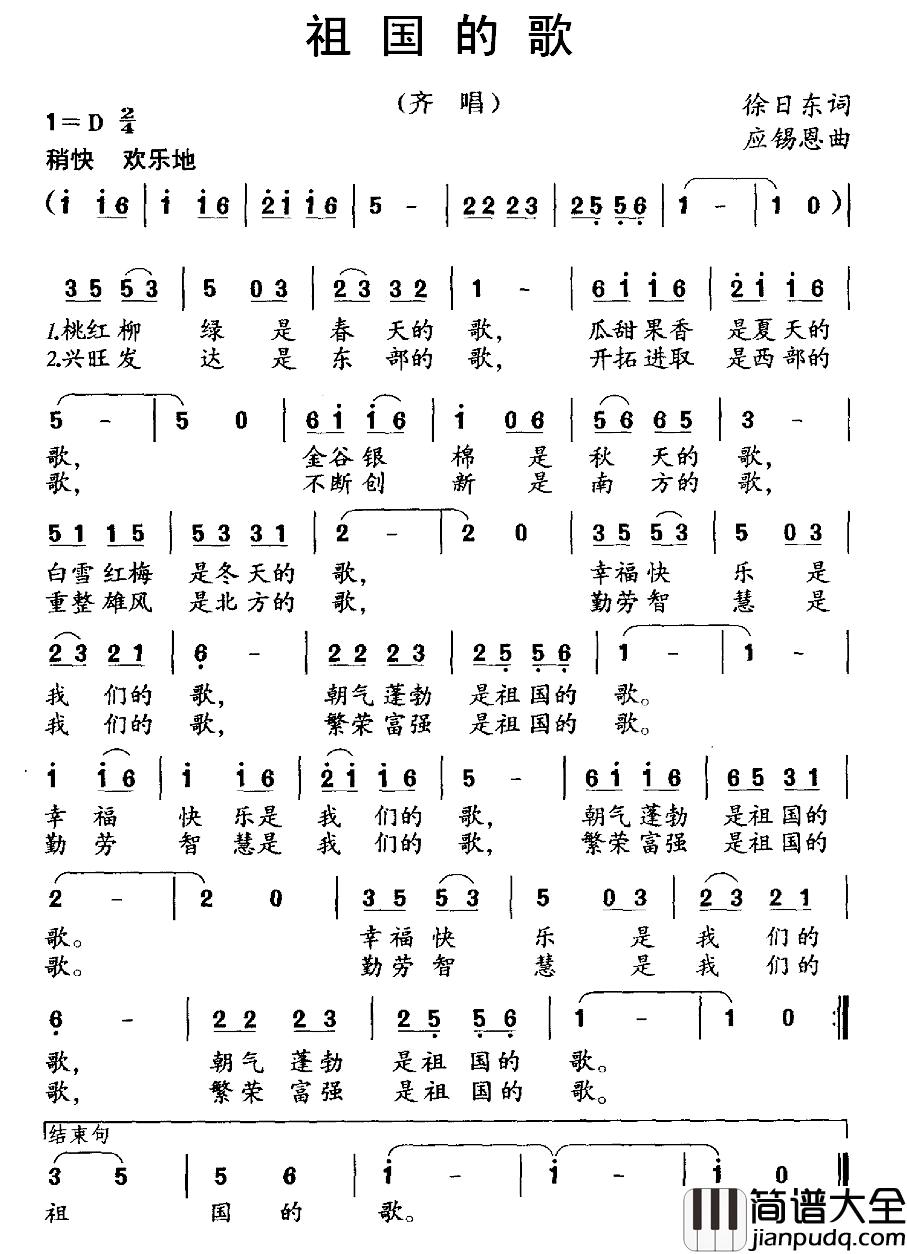 祖国的歌
(齐 唱)
徐日东词
1=D 2/4
应锡恩曲
稍快 欢乐地
(i i6 | i i6 | 2̇i i6 | 5 - | 22 23 | 25̣ 5̣6̣ | 1 - | 1 0)|
35 53 | 5 03 | 23 32 | 1 - | 6i i6 | 2̇i i6 |
1.桃红柳 绿 是 春 天的 歌, 瓜甜果香 是夏天的
2.兴旺发 达 是 东 部的 歌, 开拓进取 是西部的
5 - | 5 0 | 6i i6 | i 06 | 56 65 | 3 - |
歌, 金谷银 棉 是 秋 天的 歌,
歌, 不断创 新 是 南 方的 歌,
51 15 | 53 31 | 2 - | 2 0 | 35 53 | 5 03 |
白雪红梅 是冬天的 歌, 幸福快 乐 是
重整雄风 是北方的 歌, 勤劳智 慧 是
23 21 | 6̣ - | 22 23 | 25̣ 5̣6̣ | 1 - | 1 - |
我 们的 歌, 朝气蓬勃 是祖国的 歌。
我 们的 歌, 繁荣富强 是祖国的 歌。
i i6 | i i6 | 2̇i i6 | 5 - | 6i i6 | 65 31 |
幸 福 快 乐是 我 们的 歌, 朝气蓬勃 是祖国的
勤 劳 智 慧是 我 们的 歌, 繁荣富强 是祖国的
2 - | 2 0 | 35 53 | 5 03 | 23 21 |
歌。 幸福快 乐 是 我 们的
歌。 勤劳智 慧 是 我 们的
6̣ - | 22 23 | 25̣ 5̣6̣ | 1 - | 1 0 :‖
歌, 朝气 蓬勃 是祖 国的 歌。
歌, 繁荣 富强 是祖 国的 歌。
结束句
3 5 | 5 6 | i - | i - | i 0 ‖
祖 国 的 歌。
简谱大全
jianpudq.com